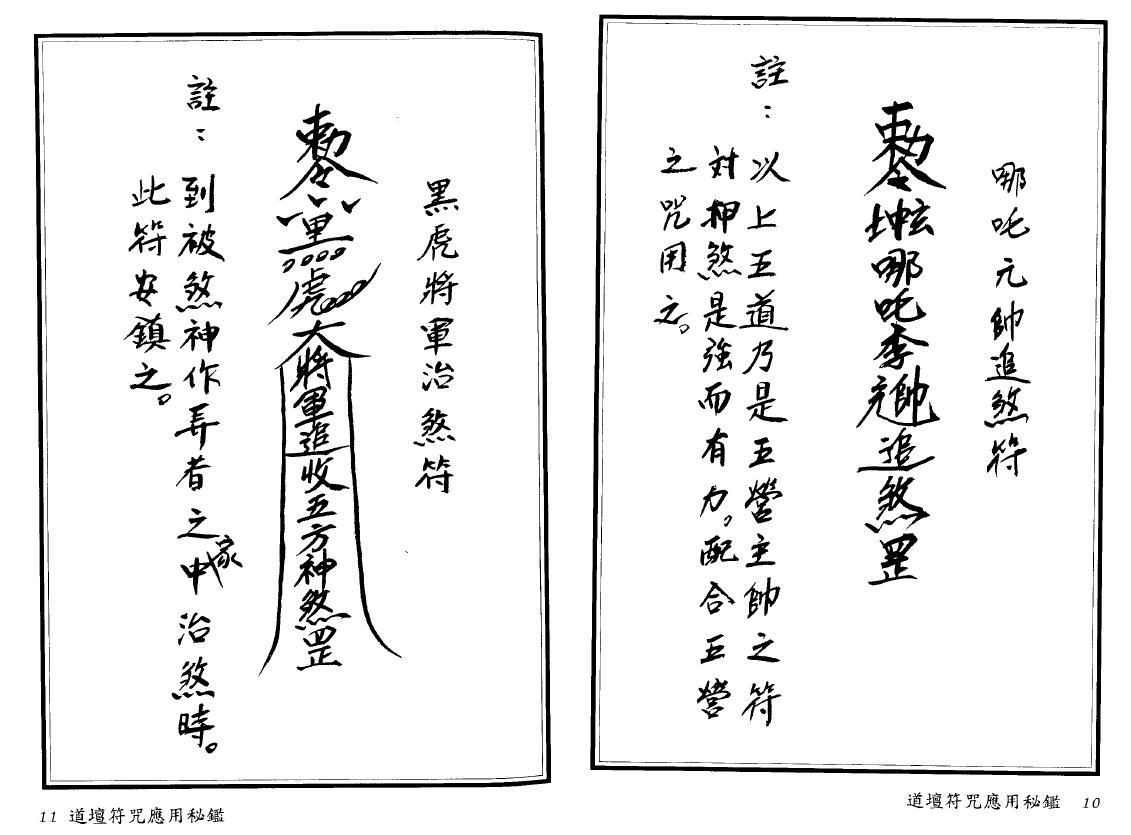 哪吒元帥追煞符
勅令𡊨哪吒李元帥追煞罡
註：以上五道乃是五營主帥之符
対押煞是強而有力。配合五營
之咒用之。
道壇符咒應用秘鑑 10
黑虎將軍治煞符
勅令黑虎大將軍追收五方神煞罡
註：到被煞神作弄者之家中治煞時。
此符安鎮之。
11 道壇符咒應用秘鑑